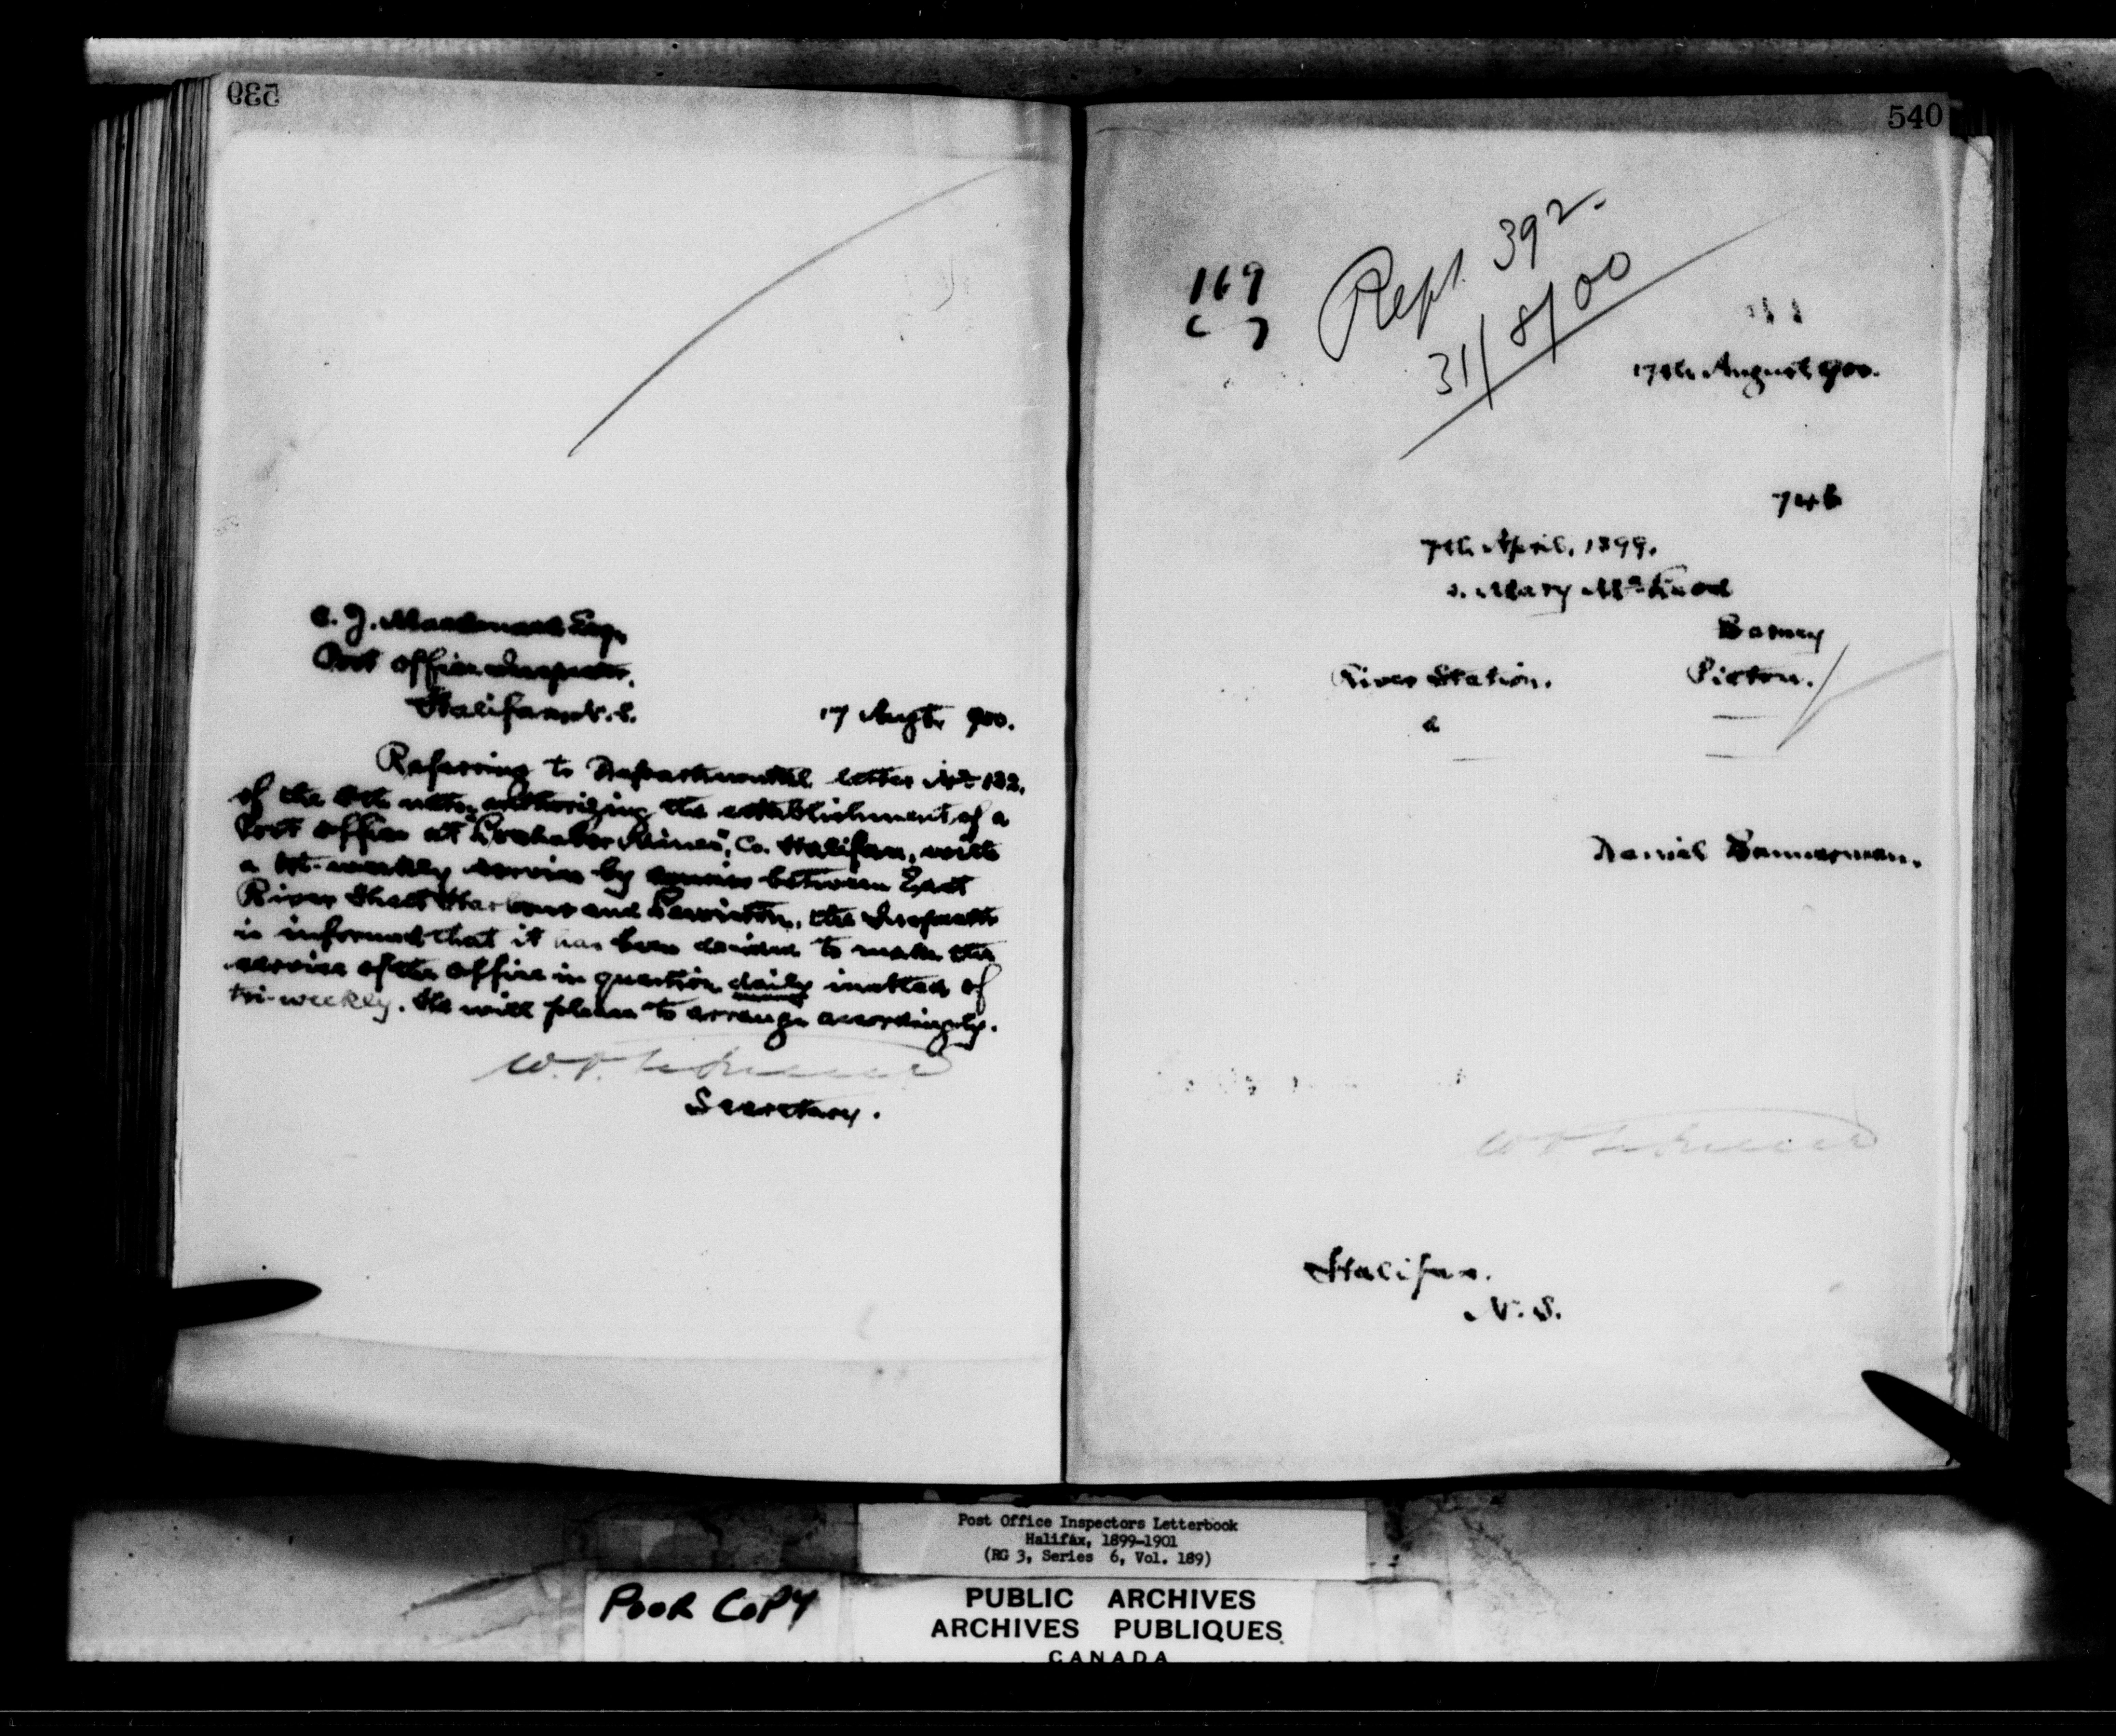 539
C. J. Macdonald Esq,
Post Office Inspector,
Halifax, N.S.
17 Augt, 900.
Referring to Departmental letter No 132,
of the ulto, authorizing the establishment of a
Post Office at Lochaber Mines", Co. Halifax, with
a tri-weekly service by courier between East
River Sheet Harbour and the Inspector
is informed that it has been decided to make the
service of the office in question daily instead of
tri-weekly. He will please to arrange accordingly.
Secretary.
540
169
Rept. 392.
31/8/00
17th August 900.
746
7th April, 1899.
Mary
Barney
River Station.
Pictou.
a
Daniel Bannerman.
Halifax.
N. S.
Post Office Inspectors Letterbook
Halifax, 1899-1901
(RG 3, Series 6, Vol. 189)
POOR COPY
PUBLIC ARCHIVES
ARCHIVES PUBLIQUES
CANADA